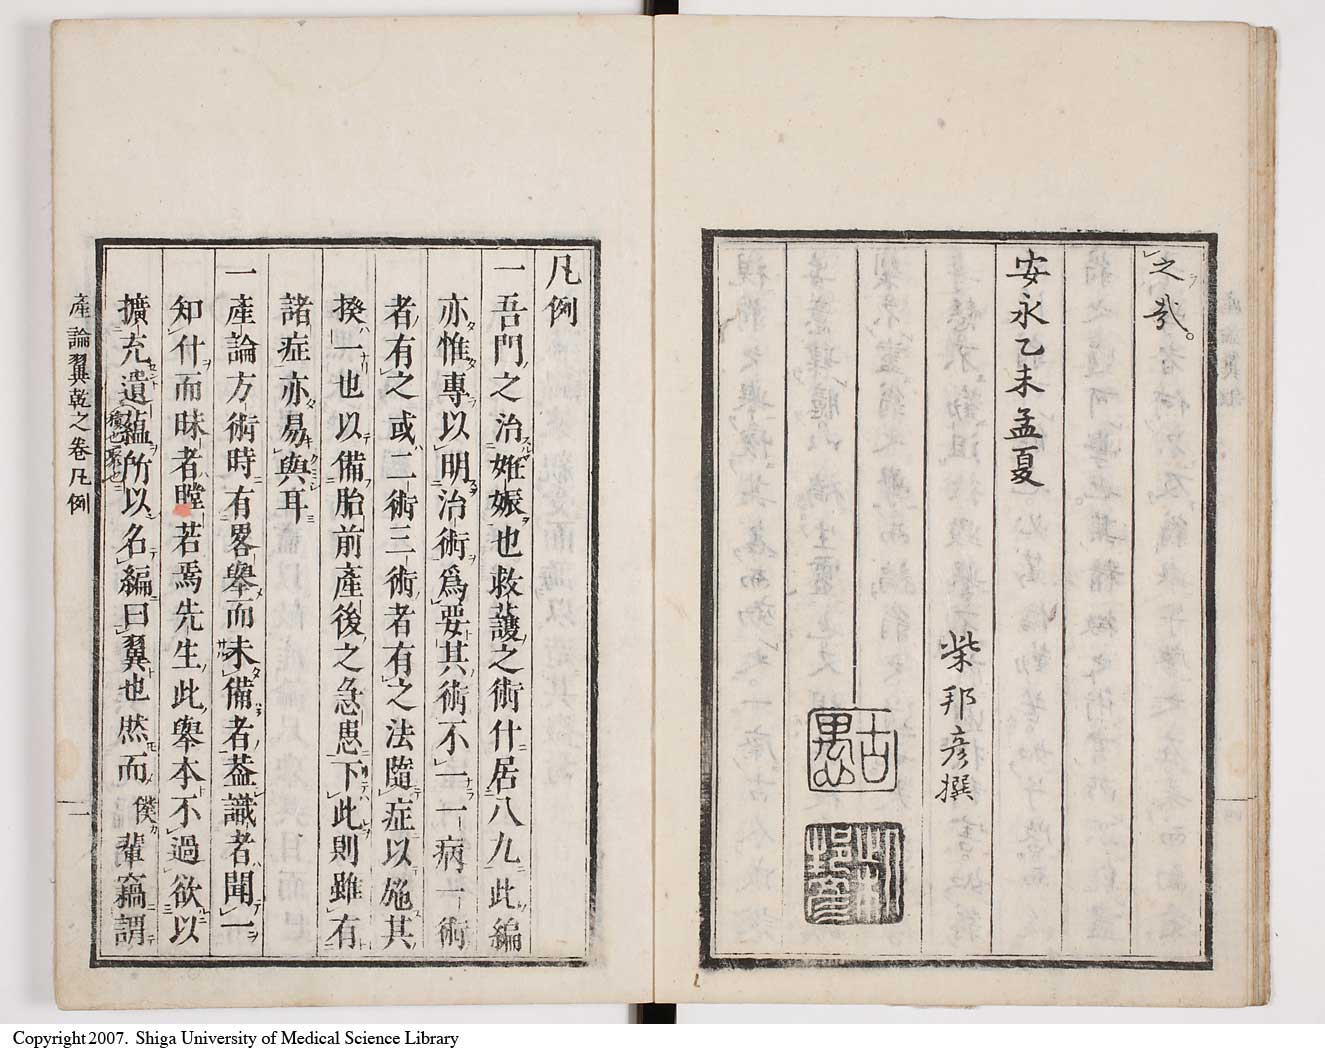 之哉。
安永乙未孟夏
柴邦彦撰
凡例
一吾門之治姙娠也救護之術什居八九此編
亦惟專以明治術爲要其術不一一病一術
者有之或二術三術者有之法隨症以施其
揆一也以備胎前產後之急患下此則雖有
諸症亦易與耳
一產論方術時有畧舉而未備者葢識者聞一
知什而昧者瞠若焉先生此舉本不過欲以
擴充遺蘊所以名編曰翼也然而僕輩竊謂
產論翼乾之卷凡例
一
Copyright 2007. Shiga University of Medical Science Library